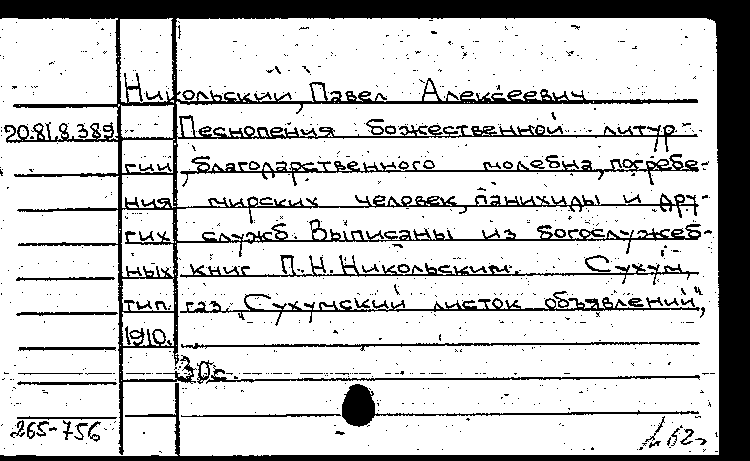 Никольский, Павел Алексеевич
20.81.8.389. Песнопения божественной литур-
гии, благодарственного молебна, погребе-
ния мирских человек, панихиды и дру-
гих служб. Выписаны из богослужеб-
ных книг П.Н.Никольским. Сухум,
тип. газ. „Сухумский листок объявлений",
1910.
30с.
265-756
62г